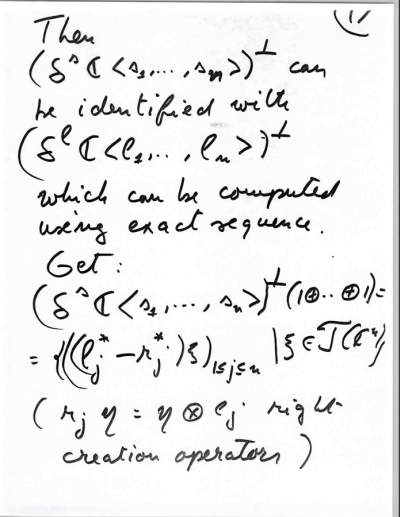 (1)
Then
(δˢ ℂ<s₁,...,sₙ>)^⊥ can
be identified with
(δ^ℓ ℂ<ℓ₁,...,ℓₙ>)^⊥
which can be computed
using exact sequence.
Get:
(δˢ ℂ<s₁,...,sₙ>)^⊥ (1⊕..⊕1) =
= {((ℓⱼ* - rⱼ*)ξ)_{1≤j≤n} | ξ ∈ 𝒯(ℂⁿ)}
(rⱼ η = η ⊗ eⱼ right
creation operators)